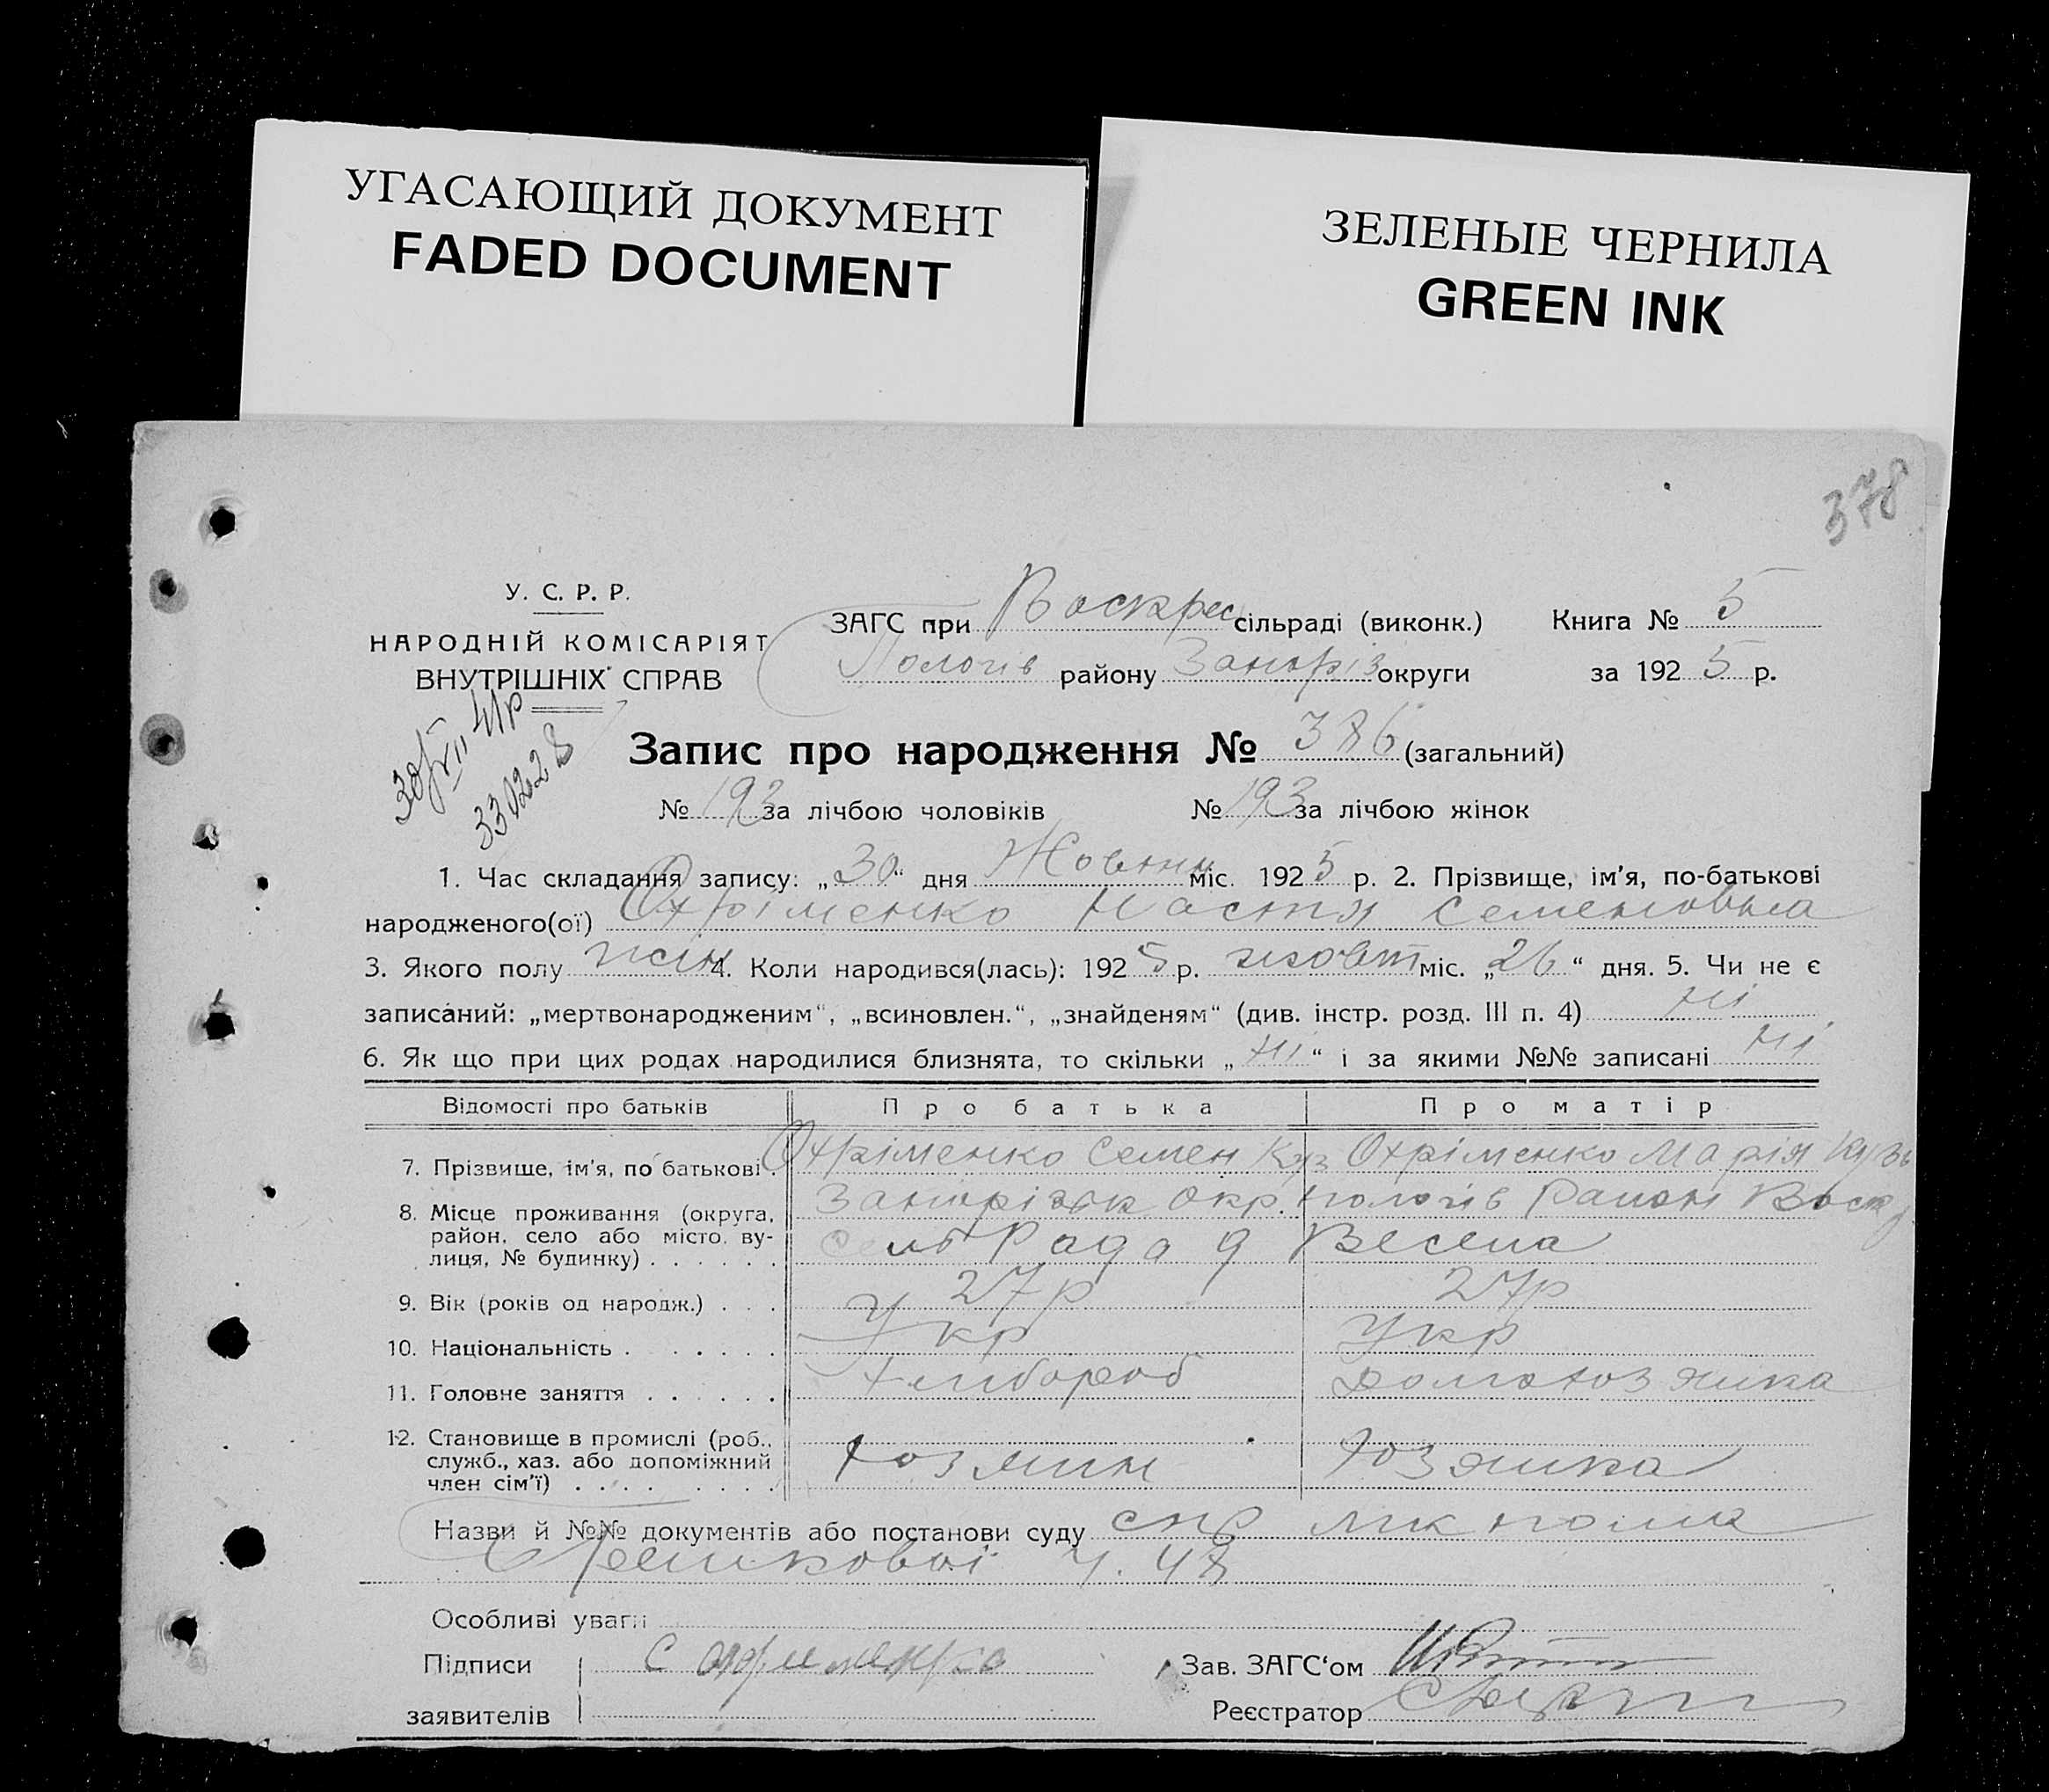 УГАСАЮЩИЙ ДОКУМЕНТ
FADED DOCUMENT
ЗЕЛЕНЫЕ ЧЕРНИЛА
GREEN INK
378
У. С. Р. Р.
НАРОДНІЙ КОМІСАРІЯТ
ВНУТРІШНІХ СПРАВ
30/VII 41р
330228
ЗАГС при Воскрес сільраді (виконк.) Книга № 5
Пологів району Запоріз округи за 192 5 р.
Запис про народження № 386 (загальний)
№ 193 за лічбою чоловіків № 193 за лічбою жінок
1. Час складання запису: „30“ дня Жовтн міс. 192 5 р. 2. Прізвище, ім’я, по-батькові
народженого(ої) Охріменко Настя Семеновна
3. Якого полу жін 4. Коли народився(лась): 192 5 р. жовт міс. „26“ дня. 5. Чи не є
записаний: „мертвонародженим“, „всиновлен.“, „знайденям“ (див. інстр. розд. III п. 4) ні
6. Як що при цих родах народилися близнята, то скільки „ні“ і за якими №№ записані ні
Відомості про батьків Про батька Про матір
7. Прізвище, ім’я, по батькові. Охріменко Семен Куз Охріменко Марія Кузь
8. Місце проживання (округа, район, село або місто, вулиця, № будинку) Запорізьк окр. Пологів Район Воскр
сельРада д Весела
9. Вік (років од народж.) 27р 27р
10. Національність Укр Укр
11. Головне заняття Хлибороб Домохозяика
12. Становище в промислі (роб., служб., хаз. або допоміжний член сім’ї) хозяин хозяика
Назви й №№ документів або постанови суду
ч. 48
Особливі уваги
Підписи С Охрименко Зав. ЗАГС‘ом
заявителів Реєстратор